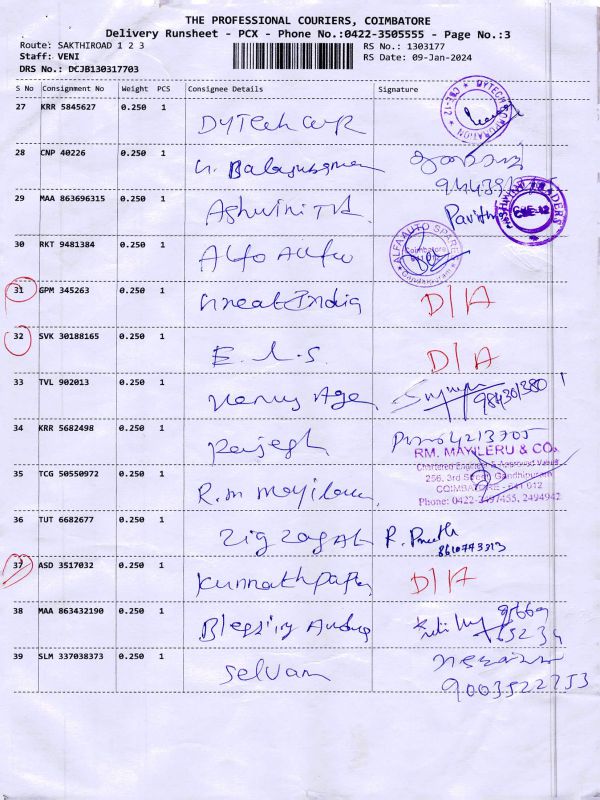 THE PROFESSIONAL COURIERS, COIMBATORE
Delivery Runsheet - PCX - Phone No.:0422-3505555 - Page No.:3
Route: SAKTHIROAD 1 2 3
RS No.: 1303177
Staff: VENI
RS Date: 09-Jan-2024
DRS No.: DCJB130317703
S No Consignment No Weight PCS Consignee Details Signature
27 KRR 5845627 0.250 1
DyTech Corp
DYTECH CORPORATION * CBE-12 *
28 CNP 40226 0.250 1
29 MAA 863696315 0.250 1
Ashwini Trd
ASHWINI TRADERS
CBE-12
30 RKT 9481384 0.250 1
Alfa Auto
ALFA AUTO SPARE
Coimbatore
Gandhipuram
31 GPM 345263 0.250 1
Great India D/A
32 SVK 30188165 0.250 1
E.L.S. D/A
33 TVL 902013 0.250 1
Venus Age
34 KRR 5682498 0.250 1
Rajesh
RM. MAYILERU & CO.
Chartered Engineer & Approved Valuer
35 TCG 50550972 0.250 1
256, 3rd Street Gandhipuram
COIMBATORE - 641 012
R.m mayileru
Phone: 0422-2497455, 2494942
36 TUT 6682677 0.250 1
Zig Zag Ab R.
37 ASD 3517032 0.250 1
Kunnath papers D/A
38 MAA 863432190 0.250 1
Blessing
39 SLM 337038373 0.250 1
Selvam
9003522753